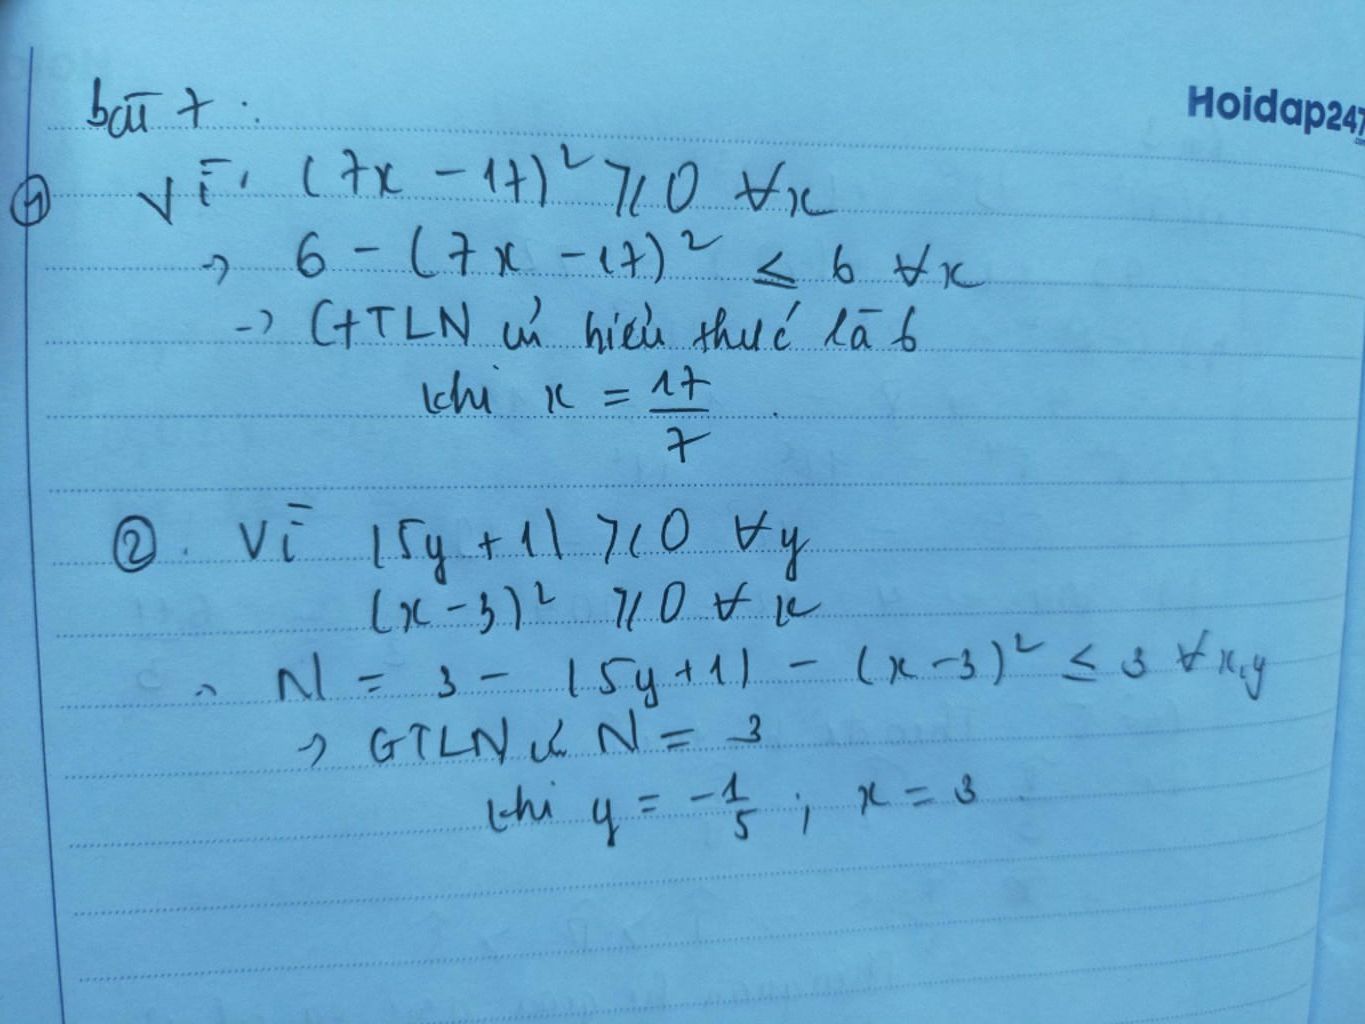 Hoidap247
bài 7:
① Vì (7x - 17)² ≥ 0 ∀x
→ 6 - (7x - 17)² ≤ 6 ∀x
→ GTLN biểu thức là 6
khi x = 17/7.
②. Vì |5y + 1| ≥ 0 ∀y
(x - 3)² ≥ 0 ∀x
→ N = 3 - |5y + 1| - (x - 3)² ≤ 3 ∀x,y
→ GTLN N = 3
khi y = -1/5; x = 3